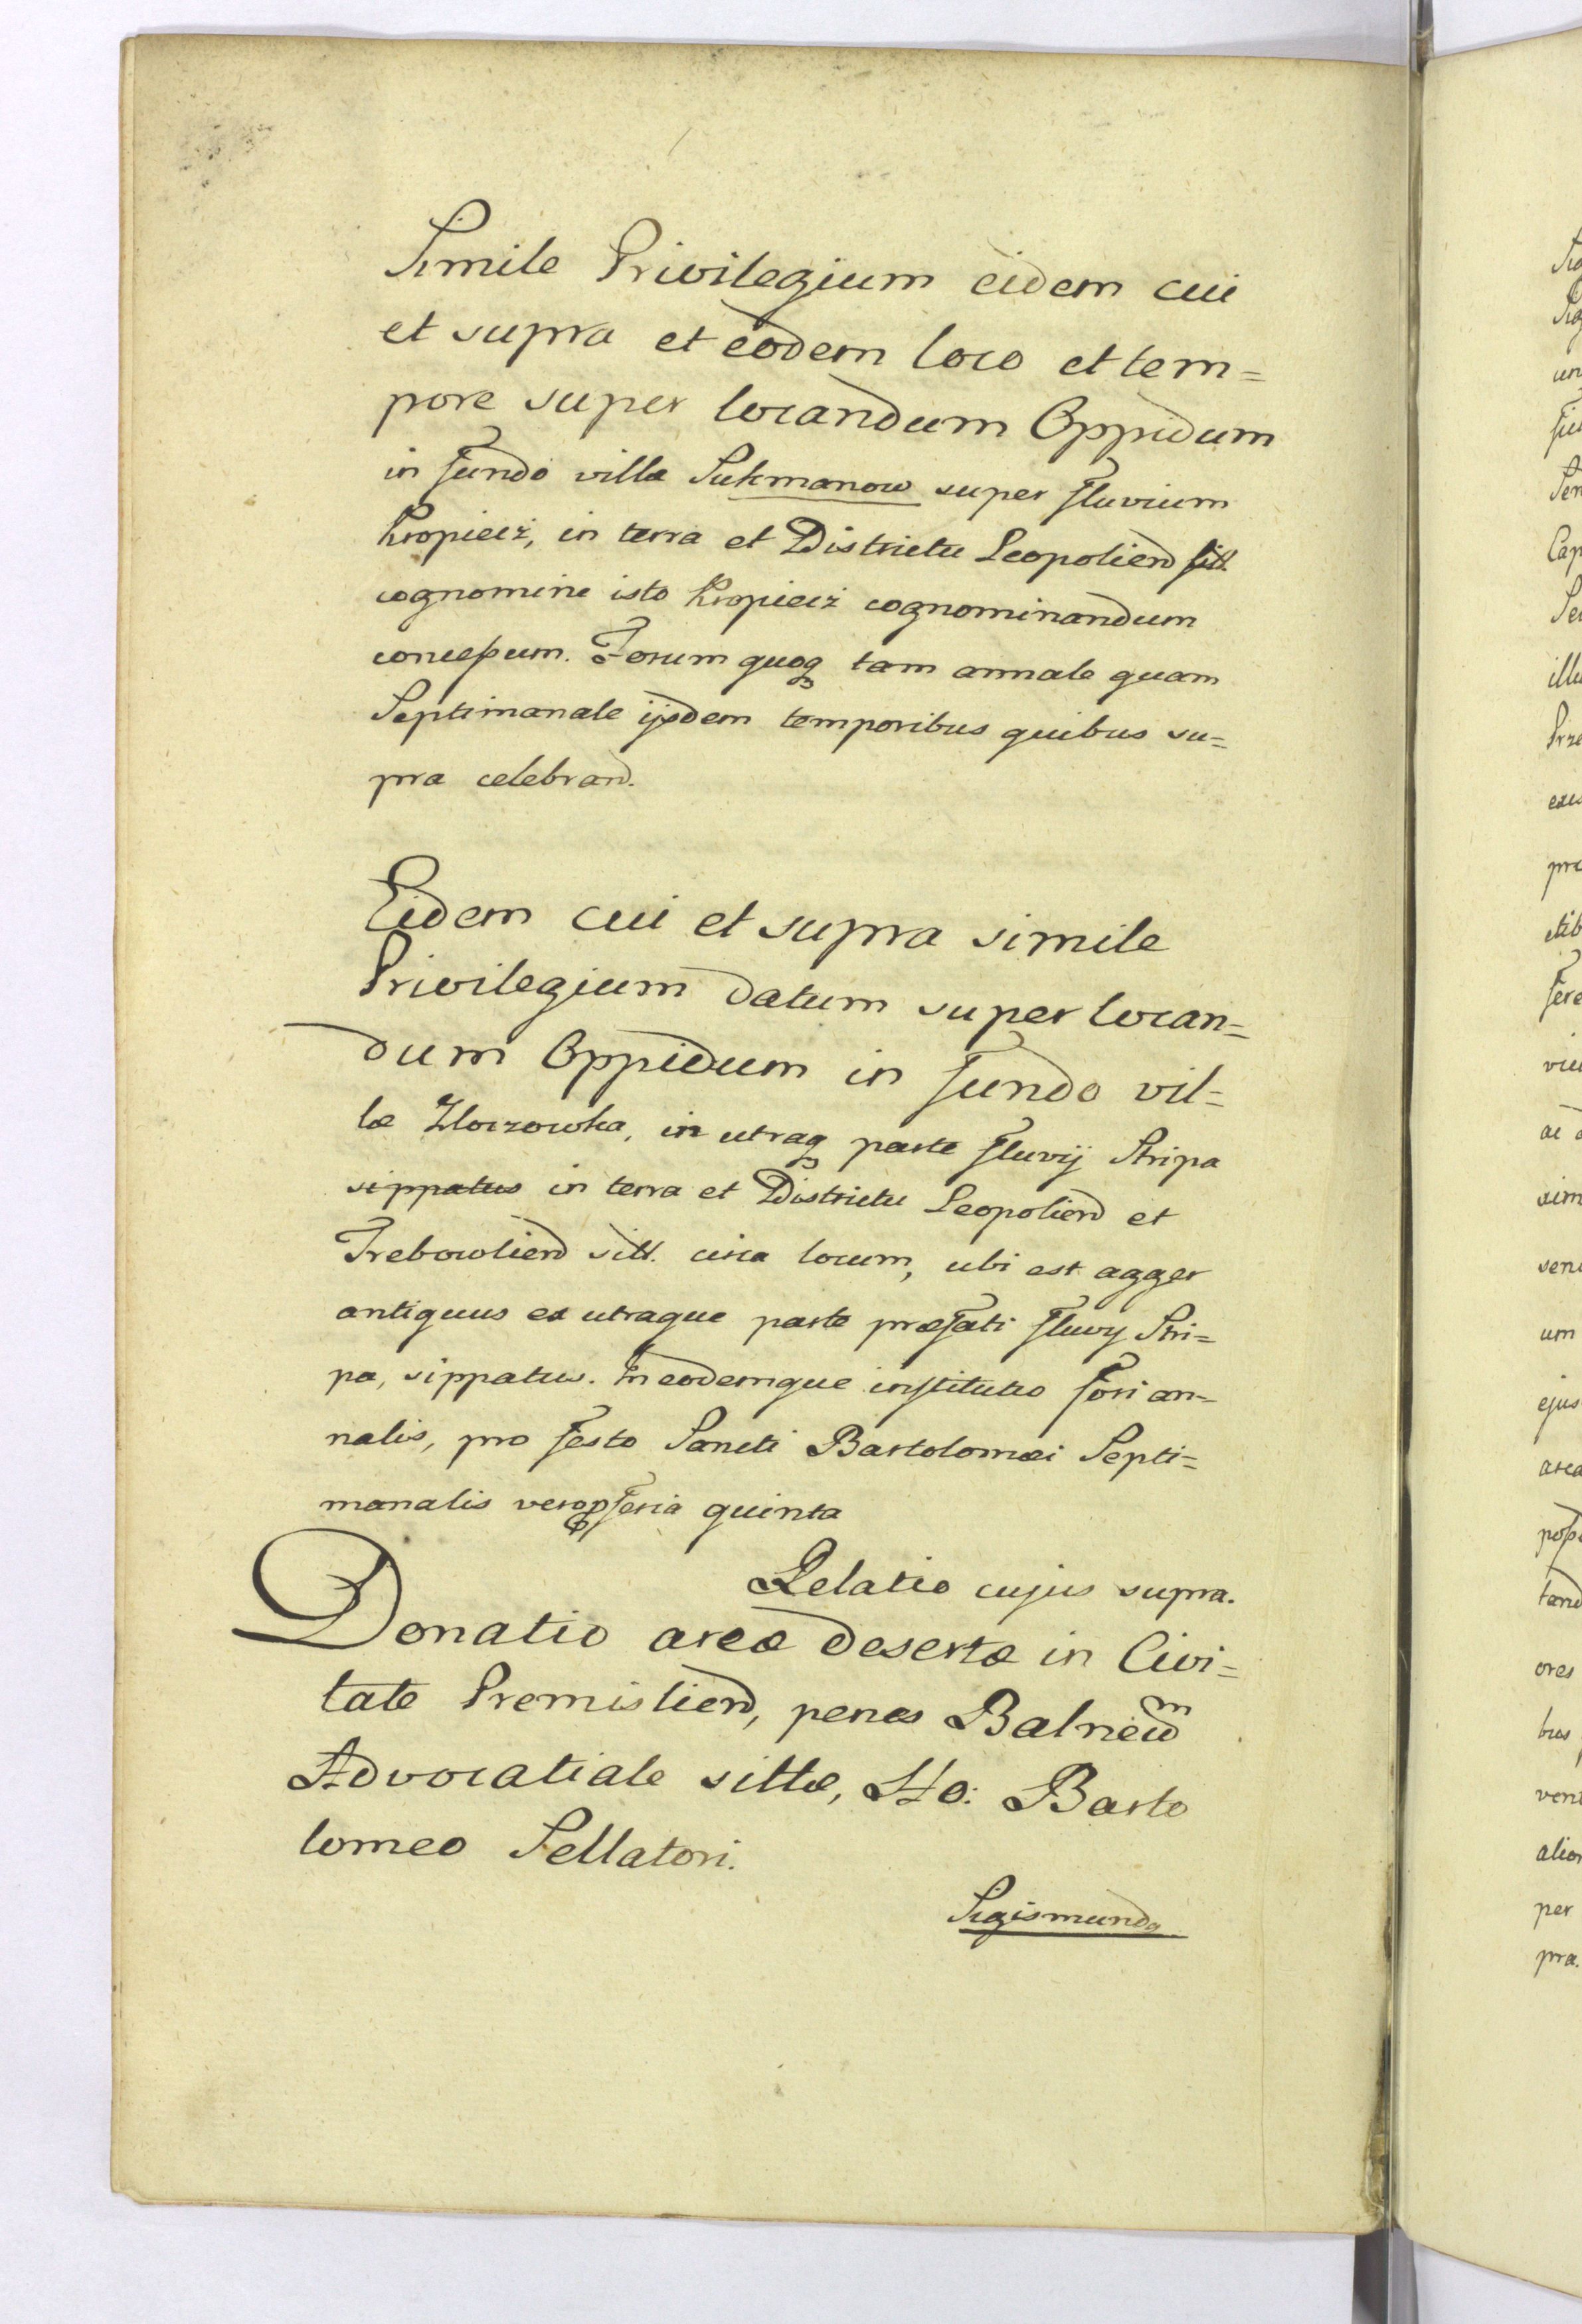 Simile Privilegium eidem cui
et supra et eodem loco et tem=
pore super locandum Oppidum
in fundo villæ Suhmanow super fluvium
Kropiecz, in terra et Districtu Leopolien sitt.
cognomine isto Kropiecz cognominandum
concessum. Forum quoq tam annale quam
Septimanale ijsdem temporibus quibus su=
pra celebrand.
Eidem cui et supra simile
Privilegium datum super locan=
dum Oppidum in fundo vil=
læ Zloczowka, in utraq parte fluvij Stripa
sippatus in terra et Districtu Leopolien et
Trebowlien sitt. circa locum, ubi est agger
antiquus ex utraque parte præfati fluvy Stri=
pa, sippatus. In eodemque institutio fori an=
nalis, pro festo Sancti Bartolomæi Septi=
manalis vero p feria quinta
Relatio cujus supra.
Donatio areæ desertæ in Civi=
tate Premislien, penes Balneum
Advocatiale sittæ, Ho: Barto
lomeo Sellatori.
Sigismundq